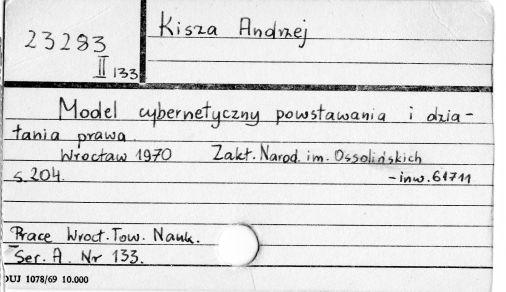 23283
II 133
Kisza Andrzej
Model cybernetyczny powstawania i dzia-
łania prawa
Wrocław 1970 Zakt. Narod. im. Ossolińskich
s. 204. -inw. 61711
Prace Wrocł. Tow. Nauk.
Ser. A. Nr 133.
DUJ 1078/69 10.000